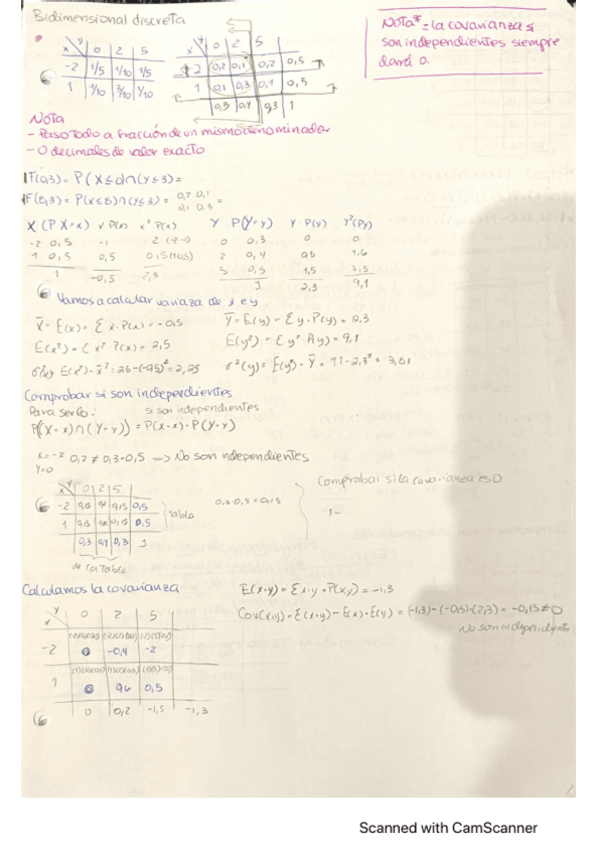 Bidimensional discreta
Nota* = la covarianza si
son independientes siempre
dará 0.
x y 0 2 5
-2 1/5 1/10 1/5
1 1/10 3/10 1/10
x y 0 2 5
-2 0,2 0,1 0,2 0,5
1 0,1 0,3 0,1 0,5
0,3 0,4 0,3 1
Nota
- Paso todo a fracción de un mismo denominador
- O decimales de valor exacto
F(0,3) = P(X≤0)∩(Y≤3) =
F(5,3) = P(X≤5)∩(Y≤3) = 0,2 0,1
0,1 0,3 =
X (P X=x) x P(x) x² P(x) Y P(Y=y) Y·P(y) Y²(Py)
-2 0,5 -1 2 0 0,3 0 0
1 0,5 0,5 0,5 2 0,4 0,8 1,6
1 -0,5 2,5 5 0,3 1,5 7,5
1 2,3 9,1
Vamos a calcular varianza de x e y
x̄ = E(x) = Σ x·P(x) = -0,5
ȳ = E(y) = Σ y·P(y) = 2,3
E(x²) = Σ x² P(x) = 2,5
E(y²) = Σ y² P(y) = 9,1
E(x²) - x̄² = 2,5 - (-0,5)² = 2,25
σ²(y) = E(y²) - ȳ = 9,1 - 2,3² = 3,81
Comprobar si son independientes
Para serlo: si son independientes
P((X=x)∩(Y=y)) = P(X=x)·P(Y=y)
x=-2
y=0
0,2 ≠ 0,3·0,5 => No son independientes
Comprobar si la covarianza es 0
x y 0 2 5
-2 0,15 0,5
1 0,15 0,5
0,3 0,4 0,3 1
tabla
0,3·0,5 = 0,15
de la tabla
Calculamos la covarianza
E(x·y) = Σ x·y·P(x,y) = -1,3
Cov(x,y) = E(x·y) - E(x)·E(y) = (-1,3) - (-0,5)·(2,3) = -0,15 ≠ 0
No son independientes
x y 0 2 5
-2 0 -0,4 -2
1 0 0,6 0,5
0 0,2 -1,5 -1,3
Scanned with CamScanner